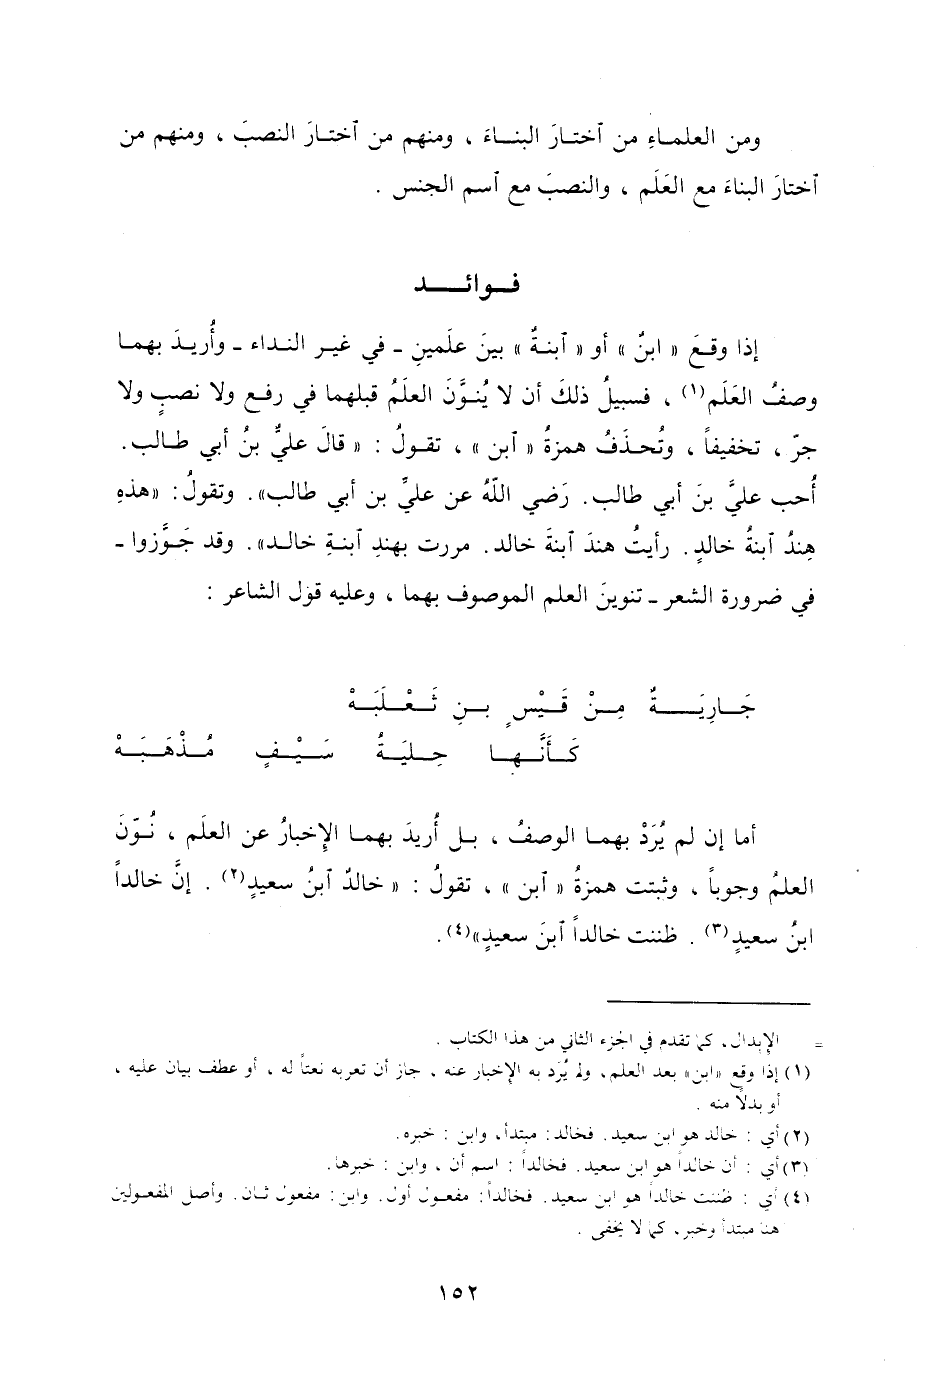 ومن العلماءِ من ٱختارَ البناءَ ، ومنهم من ٱختارَ النصبَ ، ومنهم من
ٱختارَ البناءَ مع العَلَم ، والنصبَ مع ٱسم الجنس .
فوائد
إذا وقعَ « ابنٌ » أو « ٱبنةٌ » بينَ علَمينِ - في غير النداء - وأُريدَ بهما
وصفُ العَلَم(١) ، فسبيلُ ذلكَ أن لا يُنوَّنَ العلَمُ قبلهما في رفع ولا نصبٍ ولا
جرّ ، تخفيفاً ، وتُحذَفُ همزةُ « ٱبن » ، تقولُ : « قالَ عليُّ بنُ أبي طالب.
أُحب عليَّ بنَ أبي طالب. رَضي اللّهُ عن عليِّ بن أبي طالب». وتقولُ: «هذهِ
هِندُ ٱبنةُ خالدٍ. رأيتُ هندَ ٱبنةَ خالد. مررت بهندِ ٱبنةِ خالد». وقد جَوَّزوا -
في ضرورة الشعر - تنوينَ العلم الموصوف بهما ، وعليه قول الشاعر :
جَارِيَةٌ مِنْ قَيْسٍ بنِ ثَعْلَبَهْ
كَأَنَّها حِليَةُ سَيْفٍ مُذْهَبَهْ
أما إن لم يُرَدْ بهما الوصفُ ، بل أُريدَ بهما الإخبارُ عن العلَم ، نُوّنَ
العلمُ وجوباً ، وثبتت همزةُ « ٱبن » ، تقولُ : « خالدٌ ٱبنُ سعيدٍ(٢) . إنَّ خالداً
ابنُ سعيدٍ(٣) . ظننت خالداً ٱبنَ سعيدٍ»(٤).
= الإبدال، كما تقدم في الجزء الثاني من هذا الكتاب .
(١) إذا وقع «ابن» بعد العلم، ولم يُرَد به الإخبار عنه ، جاز أن تعربه نعتاً له ، أو عطف بيان عليه ،
أو بدلاً منه .
(٢) أي : خالد هو ابن سعيد. فخالد: مبتدأ، وابن : خبره.
(٣) أي : أن خالداً هو ابن سعيد. فخالداً : اسم أن ، وابن : خبرها.
(٤) أي : ظننت خالداً هو ابن سعيد. فخالداً: مفعول أول. وابن: مفعول ثان. وأصل المفعولين
هنا مبتدأ وخبر، كما لا يخفى .
١٥٢